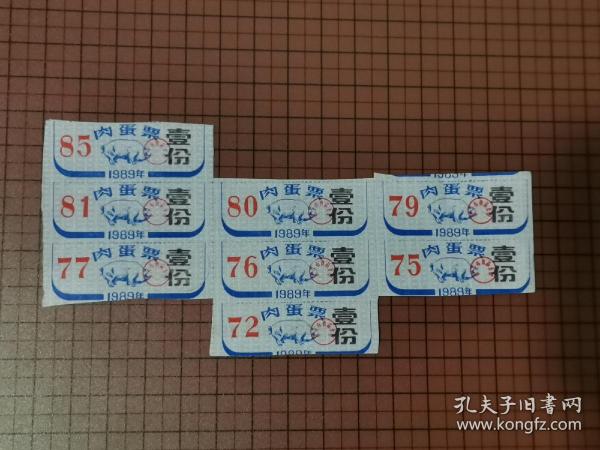 85 肉蛋票 壹份
1989年
81 肉蛋票 壹份
1989年
77 肉蛋票 壹份
1989年
80 肉蛋票 壹份
1989年
76 肉蛋票 壹份
1989年
72 肉蛋票 壹份
1989年
79 肉蛋票 壹份
1989年
75 肉蛋票 壹份
1989年
孔夫子旧书网
www.kongfz.com